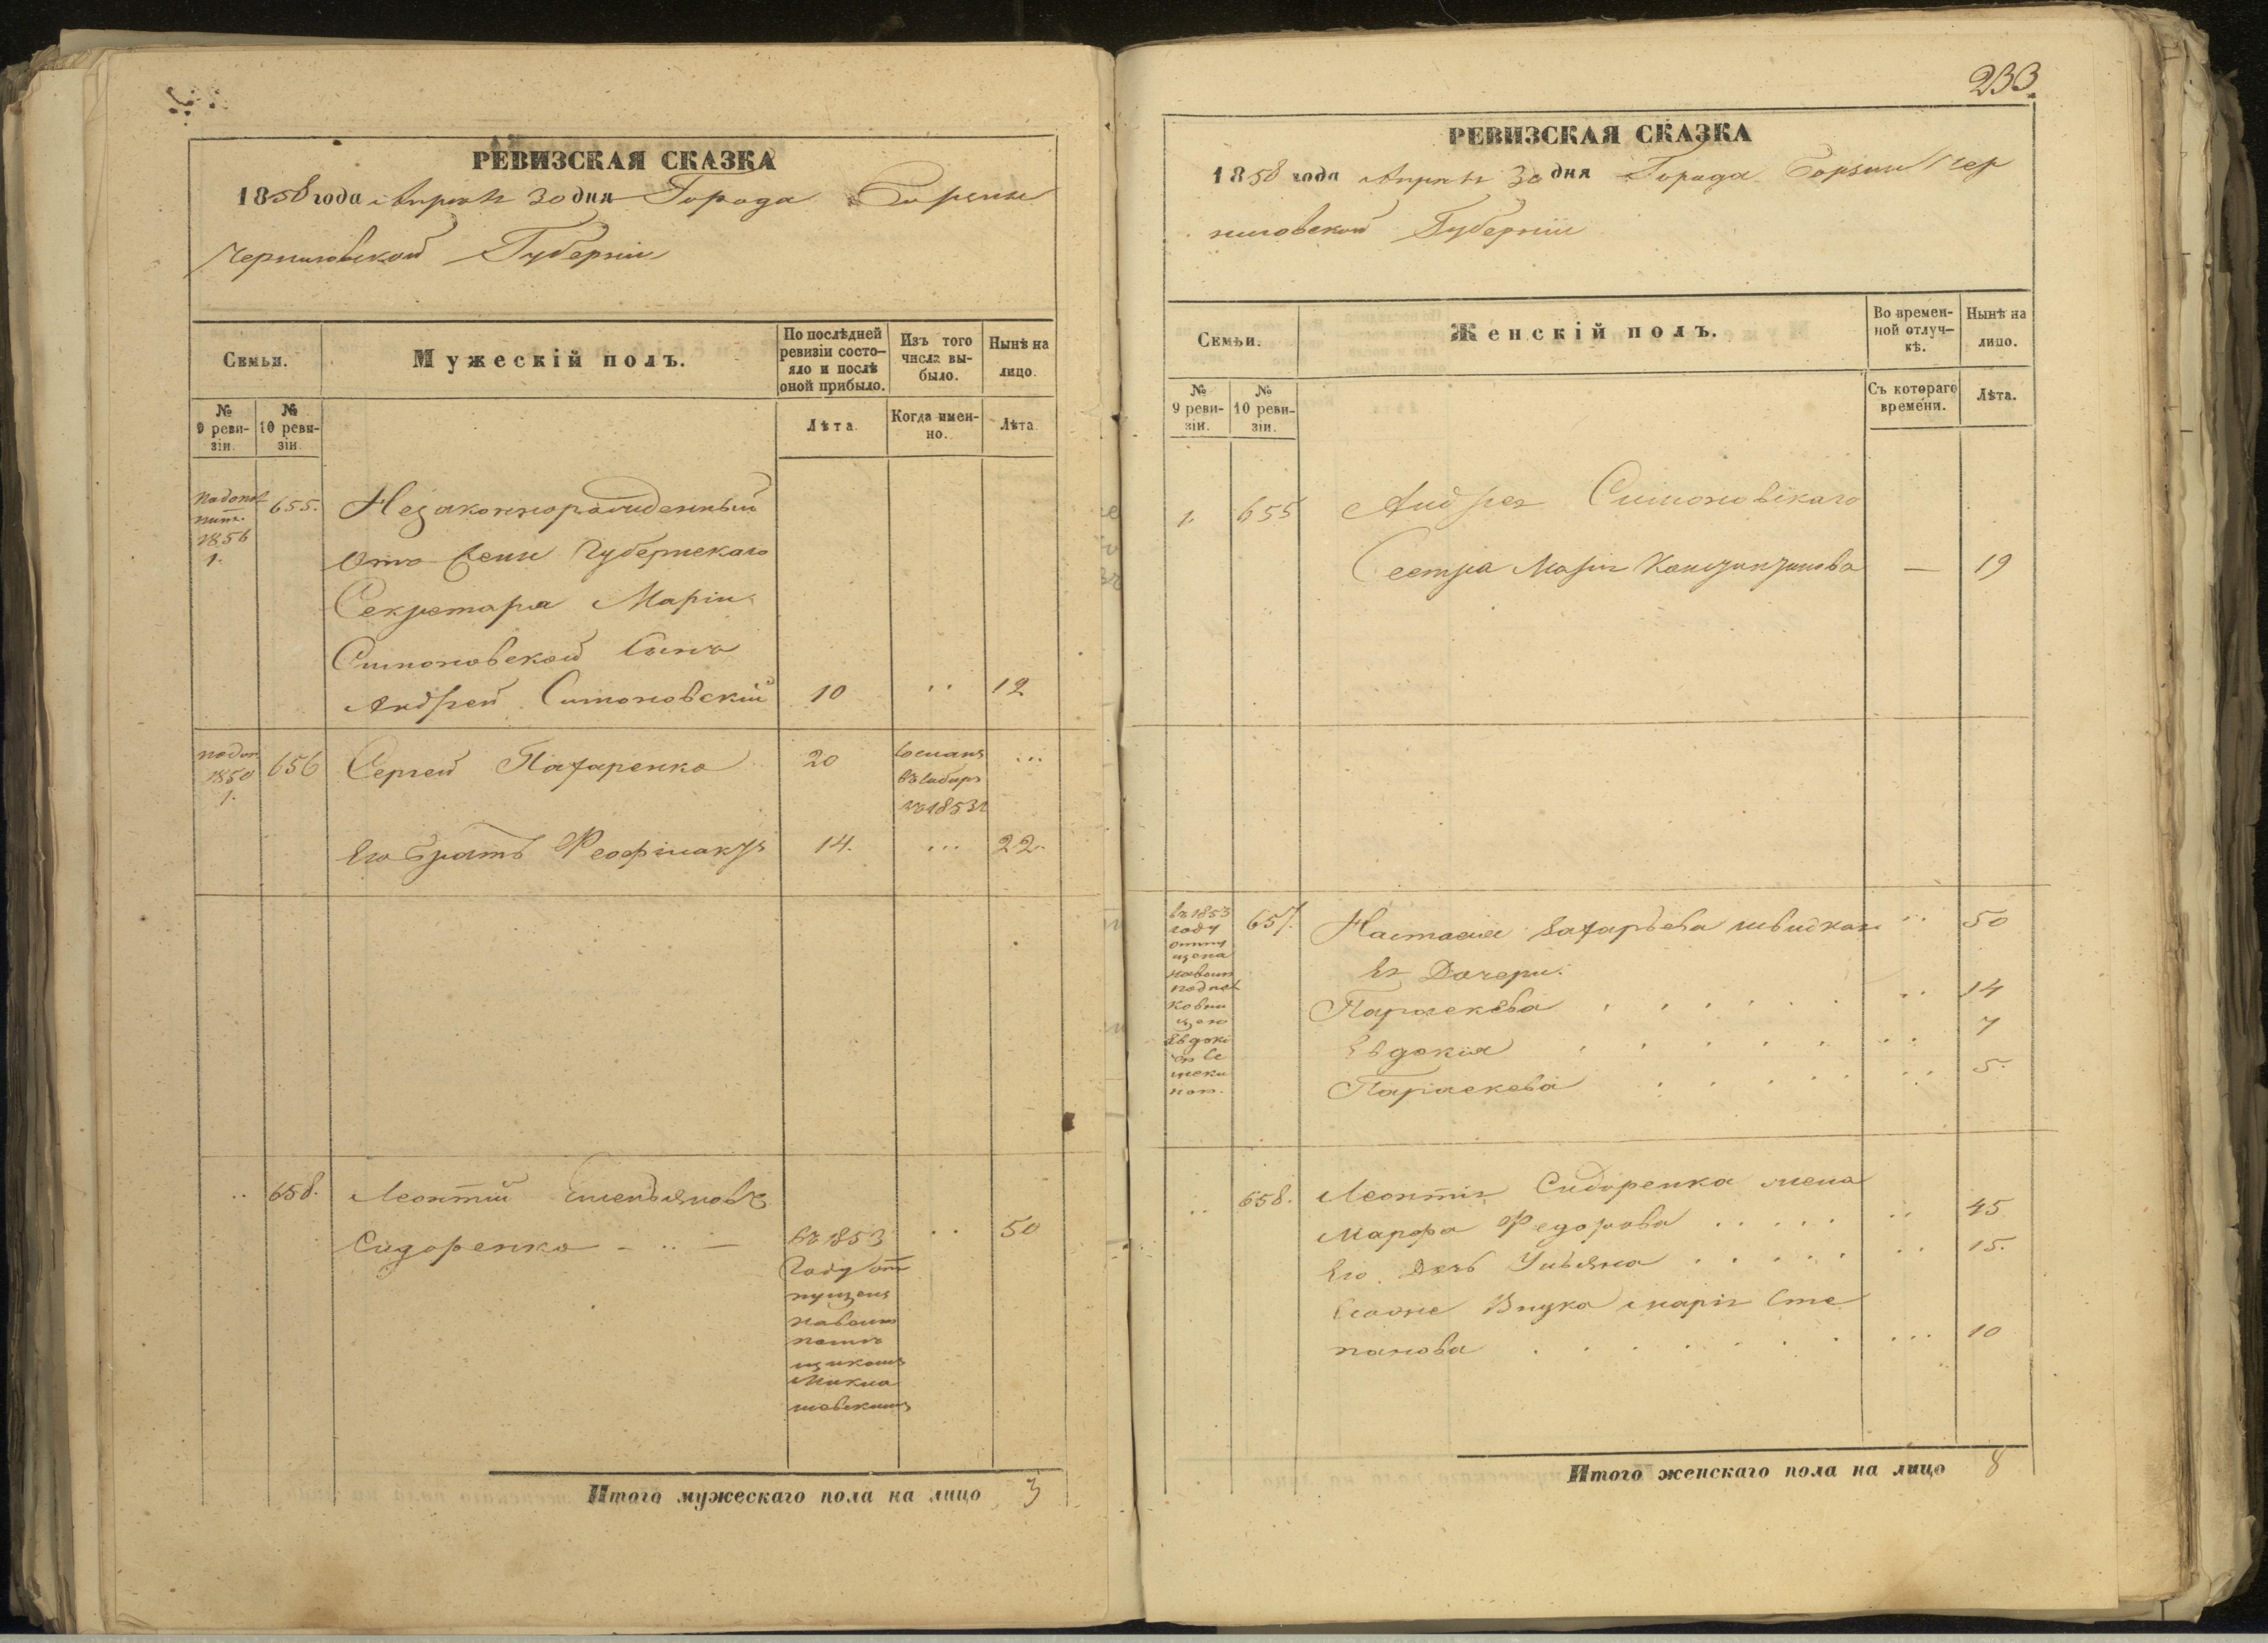 РЕВИЗСКАЯ СКАЗКА
1858 года Апреля 30 дня Города Борзны
Черниговской Губерніи
Семьи.
Мужескій полъ.
По послѣдней ревизіи состо-
яло и послѣ
оной прибыло.
Изъ того
числа вы-
было.
Нынѣ на
лицо.
№
9 реви-
зіи.
№
10 реви-
зіи.
Лѣта.
Когда имен-
но.
Лѣта.
1856
1.
655.
Незаконнорожденный
отъ Губернскаго
Секретаря Маріи
Симоновской Сынъ
Андрей Симоновскій 10 .. 12
1850
1.
656
Сергей Захаренко 20
сосланъ
въ Сибирь
въ 1853 г
...
Его братъ Феофилактъ 14. ... 22.
.. 658. Леонтій Емельяновъ
Сидоренко - .. - .. 50
въ 1853
году от
пущенъ
на волю
Микла
шевскимъ
Итого мужескаго пола на лицо 3
233.
РЕВИЗСКАЯ СКАЗКА
1858 года Апреля 30 дня Города Борзны Чер
ниговской Губерніи
Семьи.
Женскій полъ.
Во времен-
ной отлуч-
кѣ.
Нынѣ на
лицо.
№
9 реви-
зіи.
№
10 реви-
зіи.
Съ котораго
времени.
Лѣта.
1. 655 Андрея Симоновскаго
Сестра Марія Константинова — 19
въ 1853
году
отпу
щена
на волю
подпол
ковни
цею
Евдокі
657. Настасія Захарьева Швидкая .. 50
Ея Дочери.
Параскева .. 14
Евдокія .. 7
Параскева .. 5.
.. 658. Леонтія Сидоренка жена
Марфа Федорова .. 45
Его Дочь Ульяна .. 15.
Его же Внука Марія Сте
панова ... 10
Итого женскаго пола на лицо 8